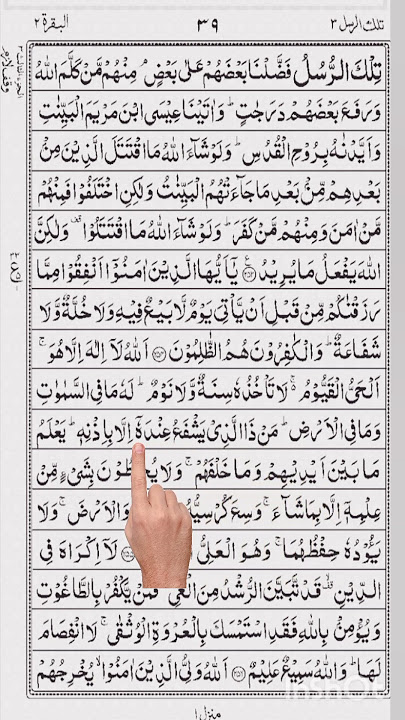 تلك الرسل ٣ ٣٩ البقرة ٢
تِلْكَ الرُّسُلُ فَضَّلْنَا بَعْضَهُمْ عَلٰى بَعْضٍ ۘ مِنْهُمْ مَّنْ كَلَّمَ اللّٰهُ
وَرَفَعَ بَعْضَهُمْ دَرَجٰتٍ ؕ وَاٰتَيْنَا عِيْسَى ابْنَ مَرْيَمَ الْبَيِّنٰتِ
وَاَيَّدْنٰهُ بِرُوْحِ الْقُدُسِ ؕ وَلَوْ شَآءَ اللّٰهُ مَا اقْتَتَلَ الَّذِيْنَ مِنْۢ
بَعْدِهِمْ مِّنْۢ بَعْدِ مَا جَآءَتْهُمُ الْبَيِّنٰتُ وَلٰكِنِ اخْتَلَفُوْا فَمِنْهُمْ
مَّنْ اٰمَنَ وَمِنْهُمْ مَّنْ كَفَرَ ؕ وَلَوْ شَآءَ اللّٰهُ مَا اقْتَتَلُوْا ۟ وَلٰكِنَّ
اللّٰهَ يَفْعَلُ مَا يُرِيْدُ ﴿۲۵۳﴾ يٰۤاَيُّهَا الَّذِيْنَ اٰمَنُوْۤا اَنْفِقُوْا مِمَّا
رَزَقْنٰكُمْ مِّنْ قَبْلِ اَنْ يَّاْتِيَ يَوْمٌ لَّا بَيْعٌ فِيْهِ وَلَا خُلَّةٌ وَّلَا
شَفَاعَةٌ ؕ وَالْكٰفِرُوْنَ هُمُ الظّٰلِمُوْنَ ﴿۲۵۴﴾ اَللّٰهُ لَاۤ اِلٰهَ اِلَّا هُوَ ۚ
اَلْحَيُّ الْقَيُّوْمُ ۚ لَا تَاْخُذُهٗ سِنَةٌ وَّلَا نَوْمٌ ؕ لَهٗ مَا فِي السَّمٰوٰتِ
وَمَا فِي الْاَرْضِ ؕ مَنْ ذَا الَّذِيْ يَشْفَعُ عِنْدَهٗۤ اِلَّا بِاِذْنِهٖ ؕ يَعْلَمُ
مَا بَيْنَ اَيْدِيْهِمْ وَمَا خَلْفَهُمْ ۚ وَلَا يُحِيْطُوْنَ بِشَيْءٍ مِّنْ
عِلْمِهٖۤ اِلَّا بِمَا شَآءَ ۚ وَسِعَ كُرْسِيُّهُ وَالْاَرْضَ ۚ وَلَا
يَـُٔوْدُهٗ حِفْظُهُمَا ۚ وَهُوَ الْعَلِيُّ لَاۤ اِكْرَاهَ فِي
الدِّيْنِ ۟ قَدْ تَّبَيَّنَ الرُّشْدُ مِنَ الْغَيِّ ۚ فَمَنْ يَّكْفُرْ بِالطَّاغُوْتِ
وَيُؤْمِنْۢ بِاللّٰهِ فَقَدِ اسْتَمْسَكَ بِالْعُرْوَةِ الْوُثْقٰى ۟ لَا انْفِصَامَ
لَهَا ؕ وَاللّٰهُ سَمِيْعٌ عَلِيْمٌ ﴿۲۵۶﴾ اَللّٰهُ وَلِيُّ الَّذِيْنَ اٰمَنُوْا ۙ يُخْرِجُهُمْ
منزل ١